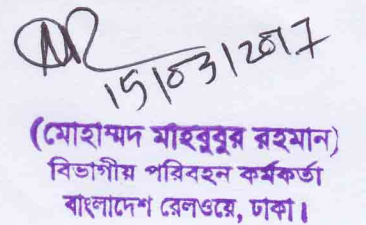 15/03/2017
(মোহাম্মদ মাহবুবুর রহমান)
বিভাগীয় পরিবহন কর্মকর্তা
বাংলাদেশ রেলওয়ে, ঢাকা।